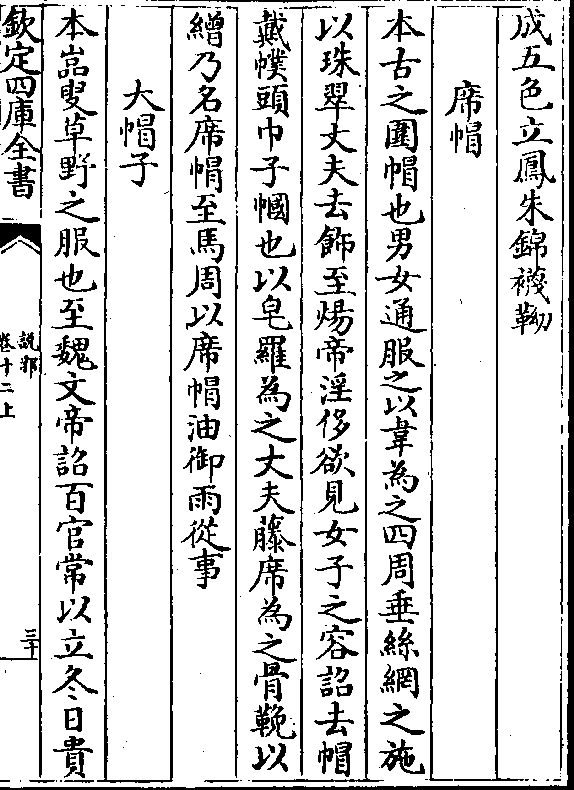 成五色立鳳朱錦襪靿
席帽
本古之圍帽也男女通服之以韋為之四周垂絲網之施
以珠翠丈夫去飾至煬帝淫侈欲見女子之容詔去帽
戴幞頭巾子幗也以皂羅為之丈夫藤席為之骨鞔以
繒乃名席帽至馬周以席帽油御雨從事
大帽子
本嵒叟草野之服也至魏文帝詔百官常以立冬日貴
欽定四庫全書
說郛
卷十二上
三十